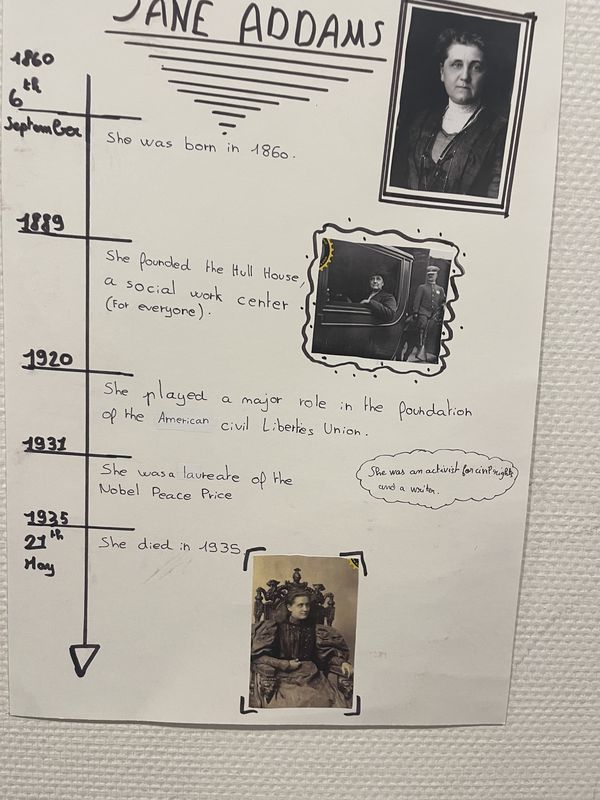 JANE ADDAMS
1860
6th
September
She was born in 1860.
1889
She founded the Hull House,
a social work center
(For everyone).
1920
She played a major role in the foundation
of the American civil Liberties Union.
1931
She was a laureate of the
Nobel Peace Price
She was an activist for civil rights
and a writer.
1935
21th
May
She died in 1935